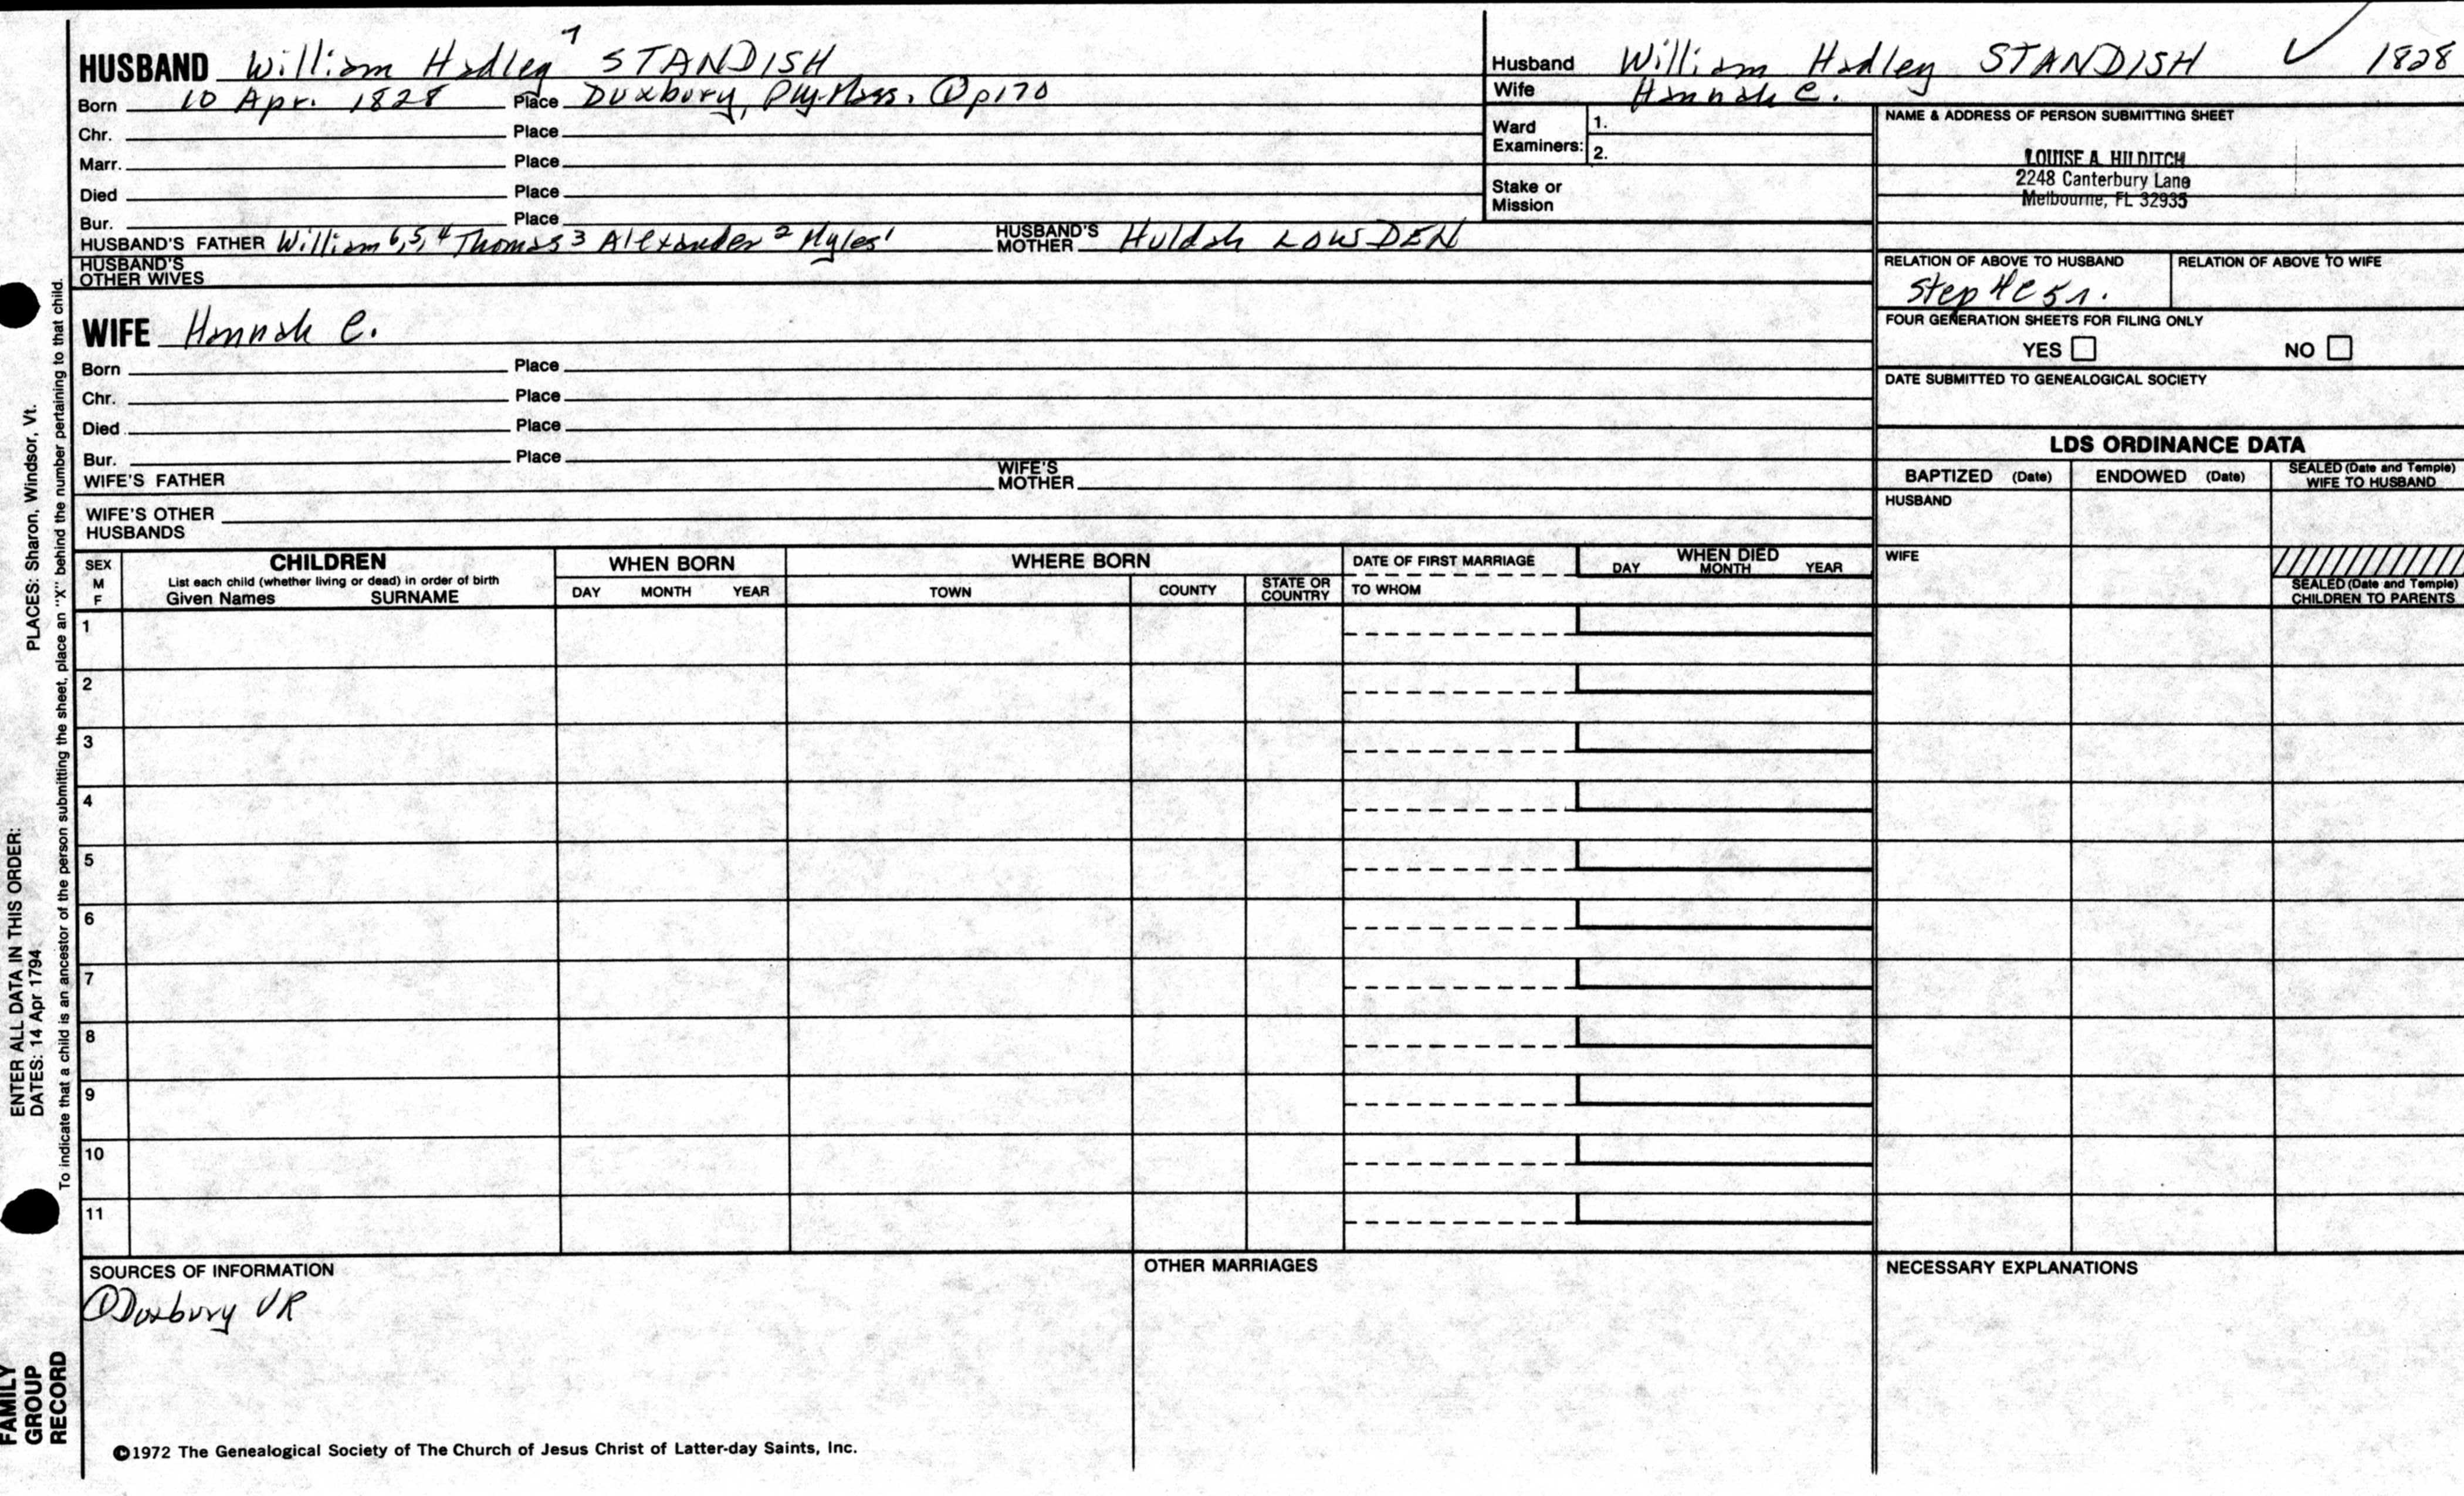 HUSBAND William Hadley 7 STANDISH
Born 10 Apr. 1828 Place Duxbury, Ply-Mass. ① p170
Chr. Place
Marr. Place
Died Place
Bur. Place
HUSBAND'S FATHER William 6,5,4 Thomas 3 Alexander 2 Myles 1 HUSBAND'S MOTHER Huldah LOWDEN
HUSBAND'S OTHER WIVES
WIFE Hannah C.
Born Place
Chr. Place
Died Place
Bur. Place
WIFE'S FATHER WIFE'S MOTHER
WIFE'S OTHER HUSBANDS
Husband William Hadley STANDISH ✓ 1828
Wife Hannah C.
Ward Examiners: 1.
2.
Stake or Mission
NAME & ADDRESS OF PERSON SUBMITTING SHEET
LOUISE A. HILDITCH
2248 Canterbury Lane
Melbourne, FL 32935
RELATION OF ABOVE TO HUSBAND RELATION OF ABOVE TO WIFE
FOUR GENERATION SHEETS FOR FILING ONLY
YES NO
DATE SUBMITTED TO GENEALOGICAL SOCIETY
LDS ORDINANCE DATA
BAPTIZED (Date) ENDOWED (Date) SEALED (Date and Temple) WIFE TO HUSBAND
HUSBAND
WIFE
SEALED (Date and Temple) CHILDREN TO PARENTS
SEX M F
CHILDREN
List each child (whether living or dead) in order of birth
Given Names SURNAME
WHEN BORN
DAY MONTH YEAR
WHERE BORN
TOWN COUNTY STATE OR COUNTRY
DATE OF FIRST MARRIAGE
TO WHOM
WHEN DIED
DAY MONTH YEAR
1
2
3
4
5
6
7
8
9
10
11
SOURCES OF INFORMATION
① Duxbury VR
OTHER MARRIAGES
NECESSARY EXPLANATIONS
©1972 The Genealogical Society of The Church of Jesus Christ of Latter-day Saints, Inc.
ENTER ALL DATA IN THIS ORDER:
DATES: 14 Apr 1794 PLACES: Sharon, Windsor, Vt.
To indicate that a child is an ancestor of the person submitting the sheet, place an "X" behind the number pertaining to that child.
FAMILY
GROUP
RECORD